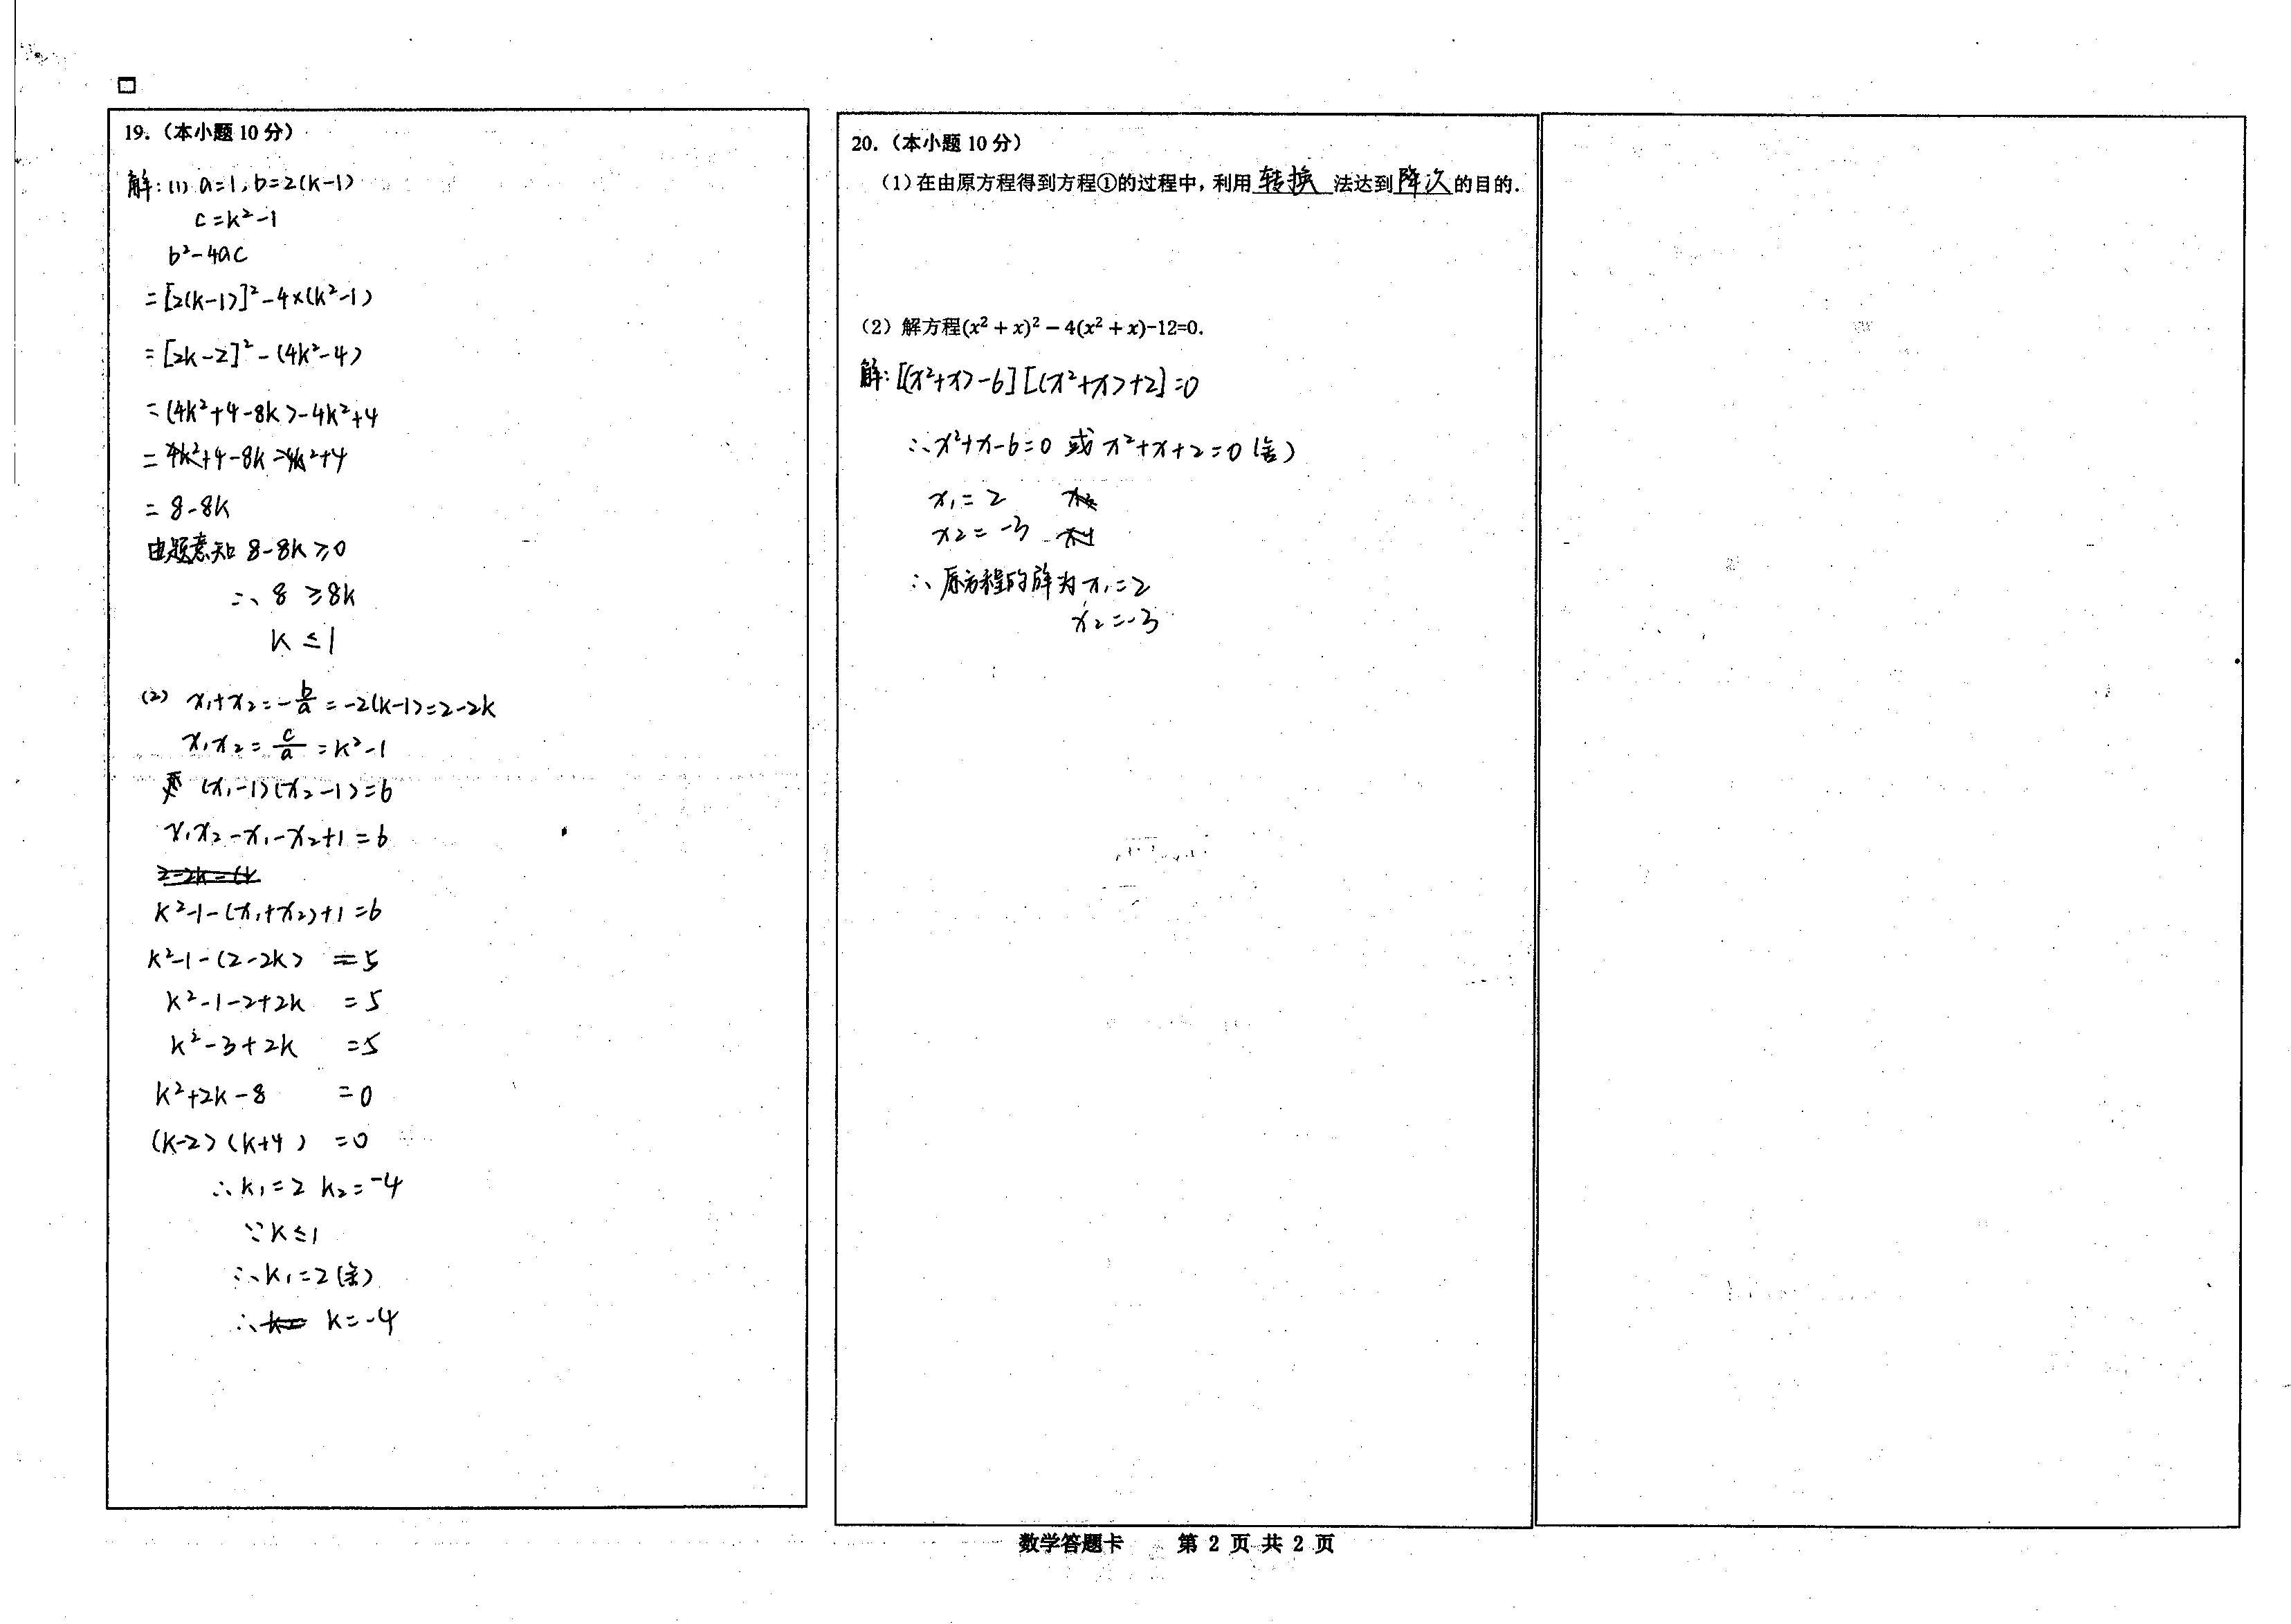 19.（本小题 10 分）
解: (1) a=1, b=2(k-1)
c=k²-1
b²-4ac
=[2(k-1)]²-4×(k²-1)
=[2k-2]²-(4k²-4)
=(4k²+4-8k)-4k²+4
=4k²+4-8k-4k²+4
=8-8k
由题意知 8-8k≥0
∴ 8≥8k
k≤1
(2) x₁+x₂=-b/a=-2(k-1)=2-2k
x₁x₂=c/a=k²-1
(x₁-1)(x₂-1)=6
x₁x₂-x₁-x₂+1=6
k²-1-(x₁+x₂)+1=6
k²-1-(2-2k) =5
k²-1-2+2k =5
k²-3+2k =5
k²+2k-8 =0
(k-2)(k+4) =0
∴k₁=2 k₂=-4
∵k≤1
∴k₁=2(舍)
∴ k=-4
20.（本小题 10 分）
（1）在由原方程得到方程①的过程中，利用 转换 法达到 降次 的目的.
（2）解方程(x²+x)²－4(x²+x)-12=0.
解: [(x²+x)-6][(x²+x)+2]=0
∴x²+x-6=0 或 x²+x+2=0 (舍)
x₁=2
x₂=-3
∴原方程的解为x₁=2
x₂=-3
数学答题卡 第 2 页 共 2 页